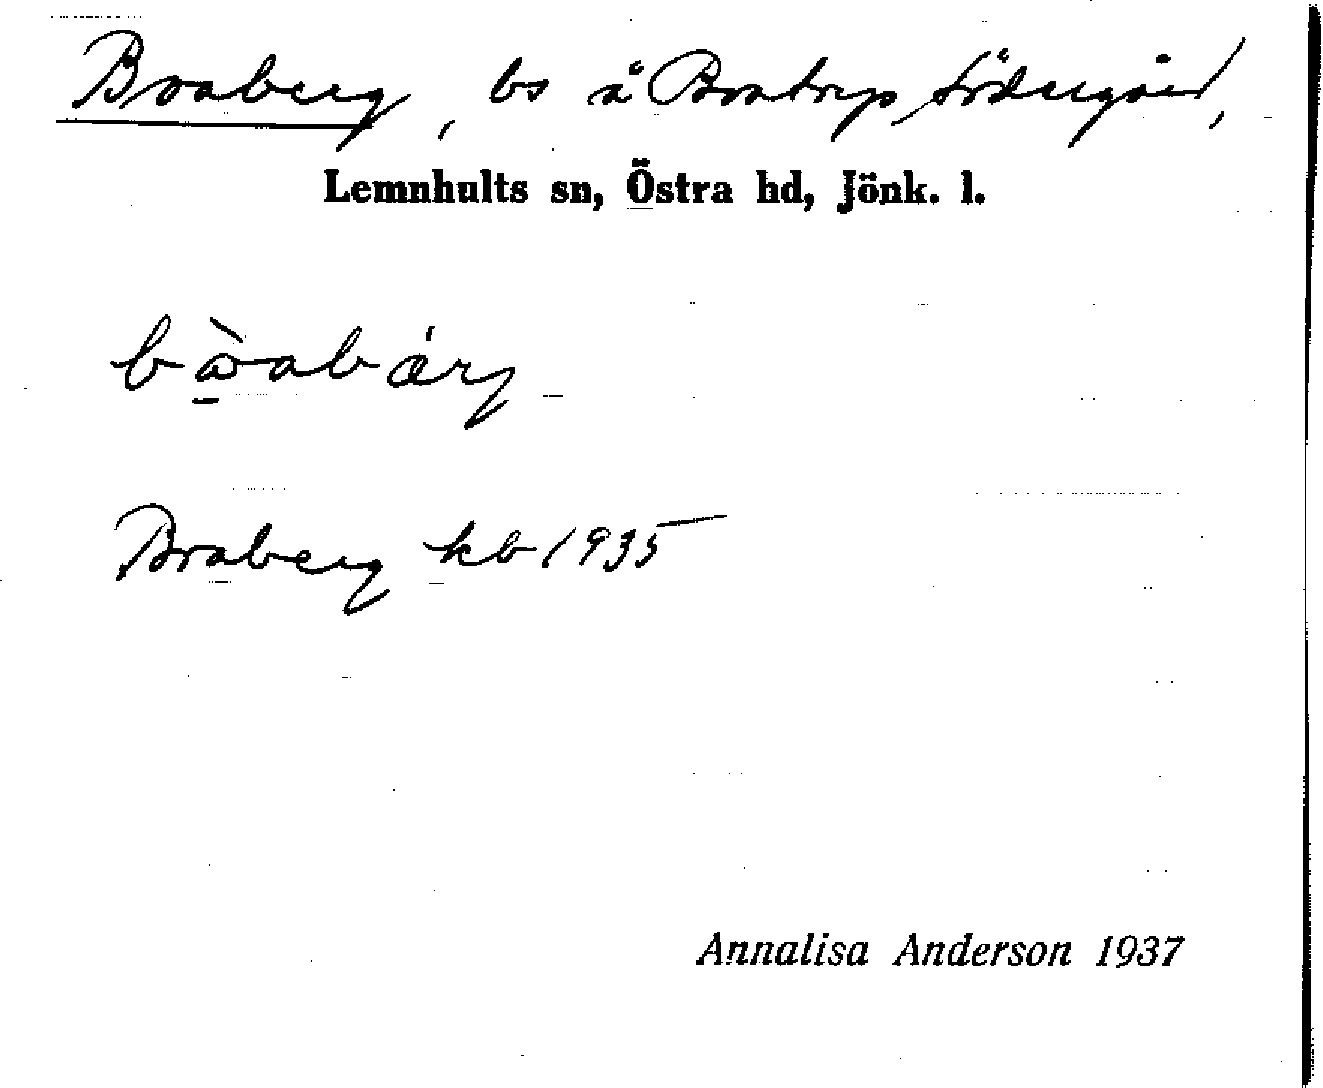 Broaberg, bs å Broatryp södergård,
Lemnhults sn, Östra hd, Jönk. l.
Braberg kb 1935
Annalisa Anderson 1937